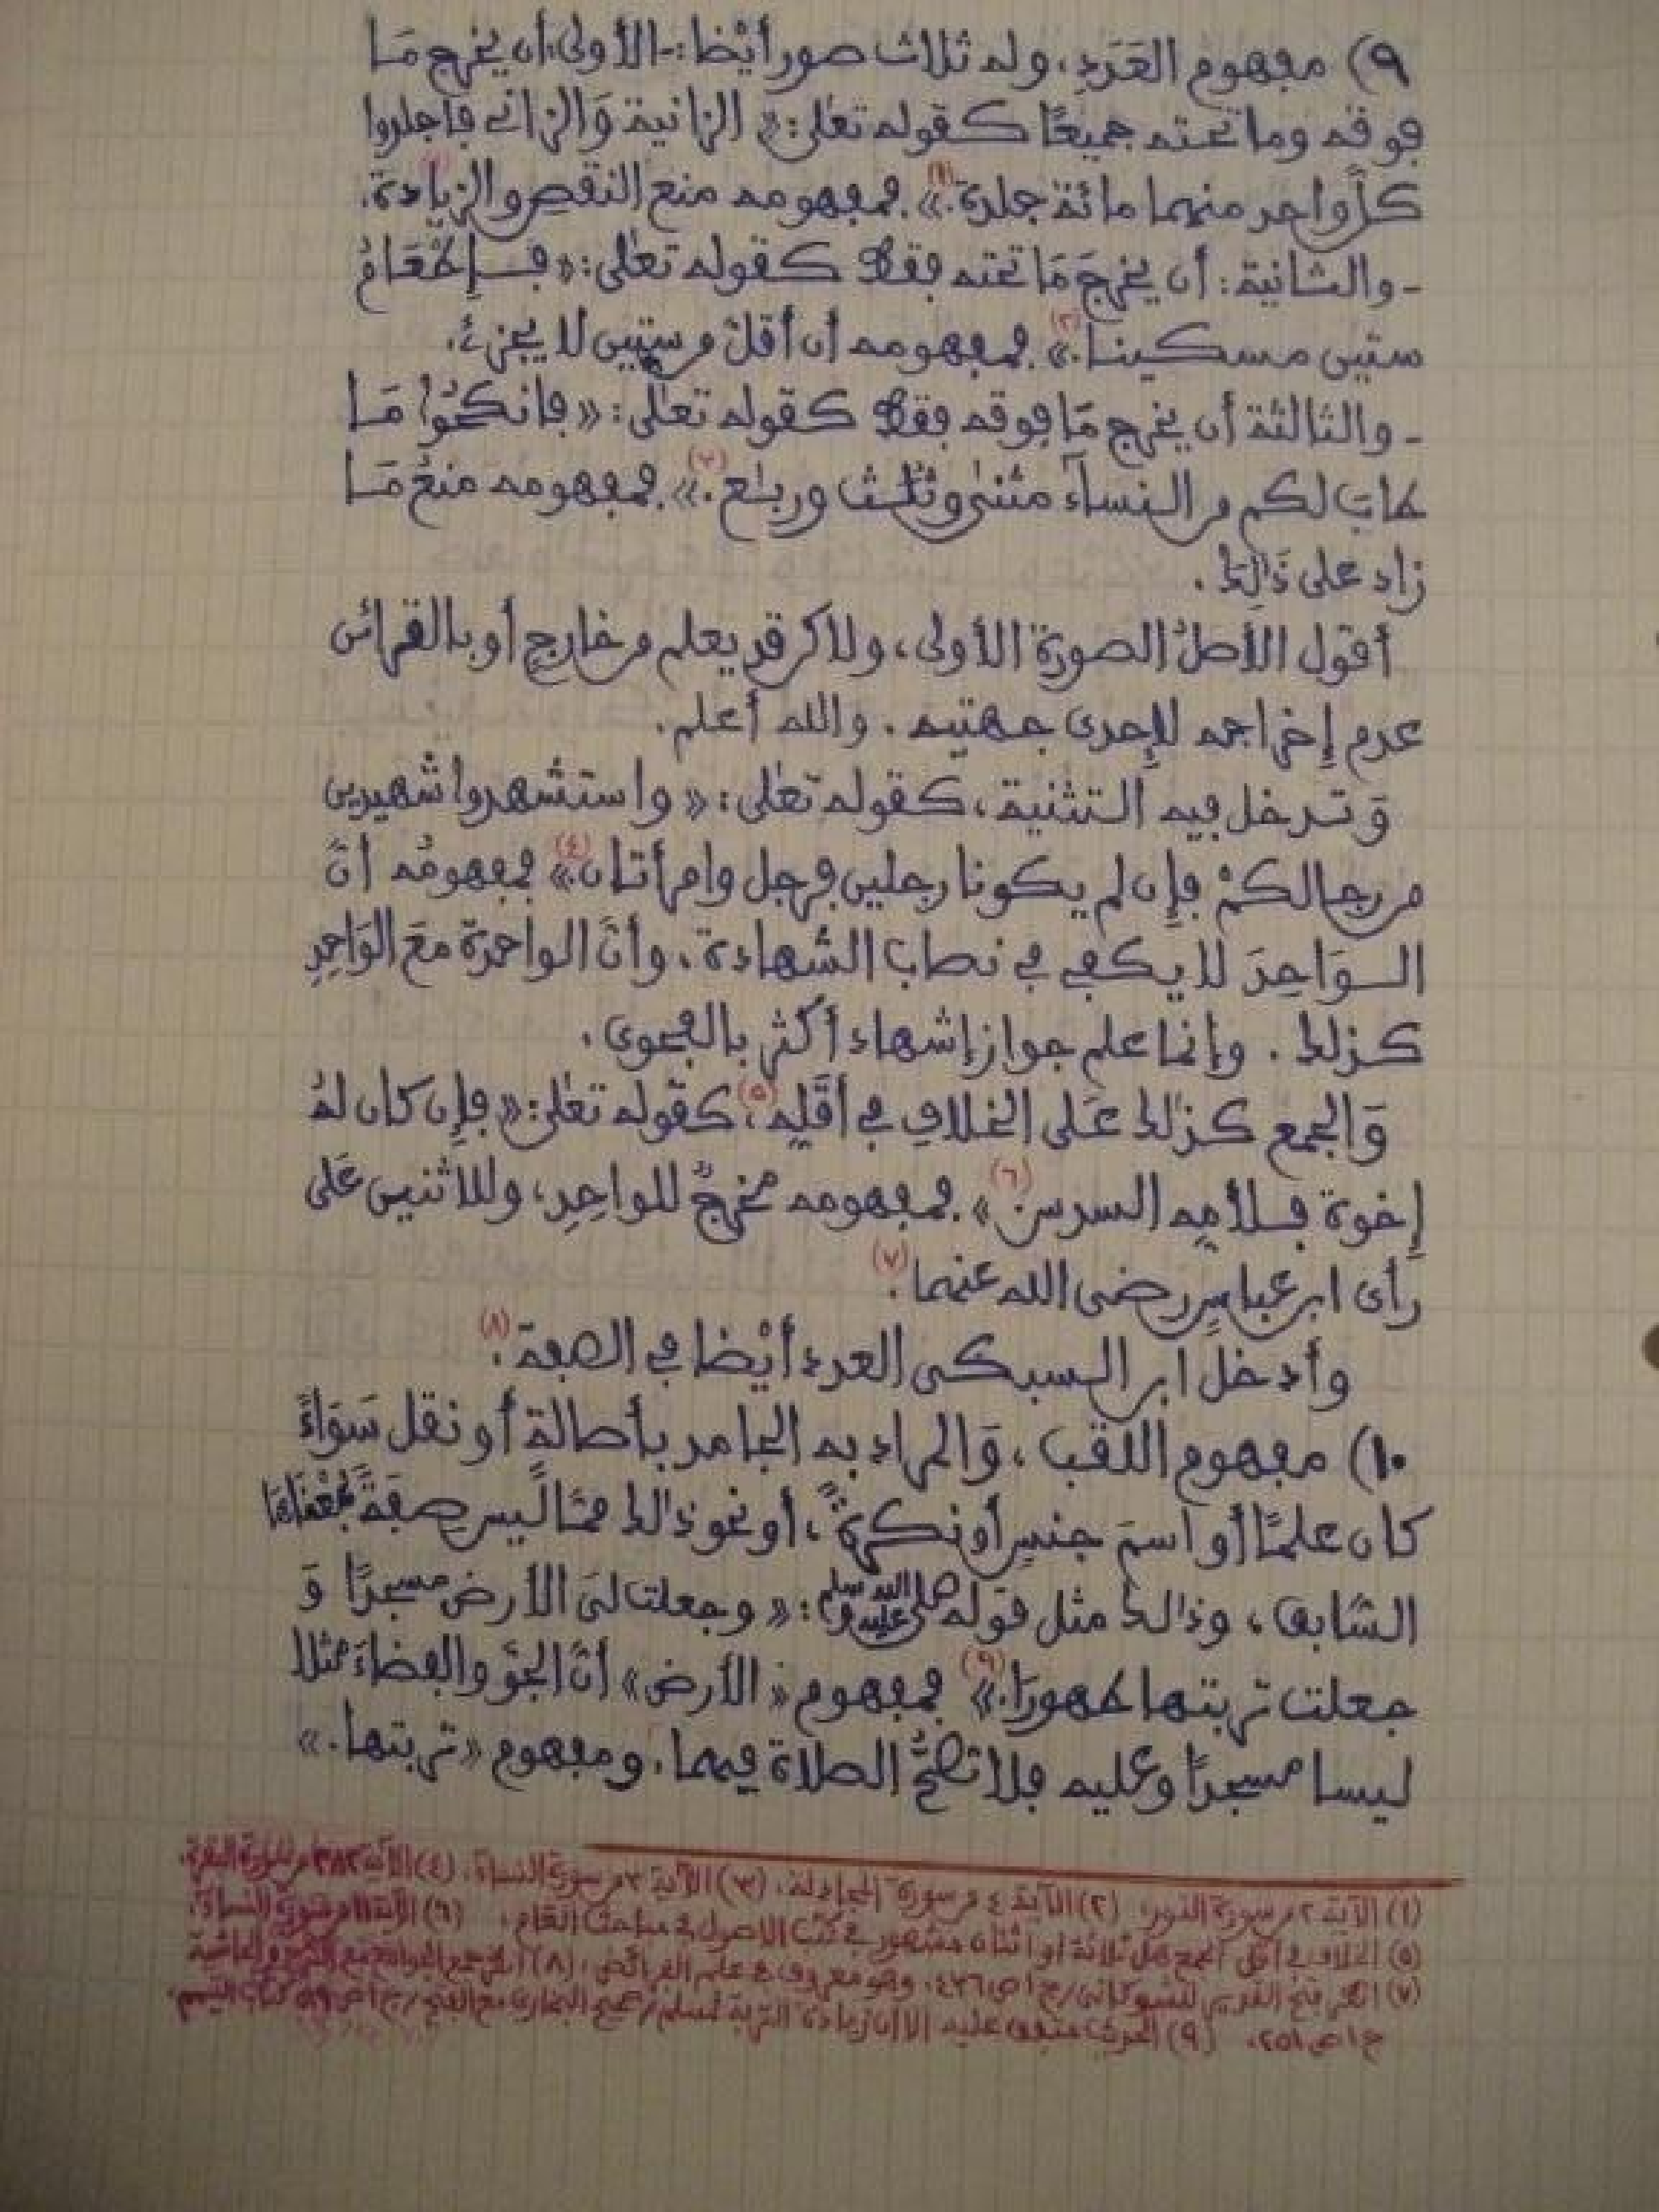 ٩) مفهوم العَدَدِ، وله ثلاث صور أيْضا:- الأولى: أن يخرج مَا
فوقه وما تحته جميعًا كقوله تعلى: « الزانية وَالزانے فاجلدوا
كلَّ واحد منهما مائة جلدة.»(١) فمفهومه منع النقصِ والزيادة.
- والثانية: أن يخرجَ مَا تحته فقط كقوله تعلى: « فإطْعَامُ
ستين مسكينا.»(٢) فمفهومه أن أقلَّ من ستين لا يجزئُ.
- والثالثة أن يخرج مَا فوقه فقط كقوله تعلى: « فانكحُوا مَا
طابَ لكم من النسآء مثنىٰ وثُلَٰث وربَٰع.»(٣) فمفهومه منعُ مَا
زاد على ذَالِكَ.
أقول الأصلُ الصورة الأولى، ولاكن قد يعلم من خارجٍ أو بالقرائن
عدم إخراجه لإحدى جهتيه. والله أعلم.
وَتدخل فيه التثنية، كقوله تعٰلى: « واستشهدوا شهيدين
من رجالكمْ فإن لم يكونا رجلين فرجل وامرأتان.»(٤) فمفهومُه أنَّ
الوَاحِدَ لا يكفي في نصاب الشهادة، وأنَّ الواحدة معَ الوَاحِدِ
كذلك. وإنما علم جواز إشهاد أكثر بالفحوى.
وَالجمع كذلك عَلى الخلافِ في أقَلِّهِ(٥)، كقوله تعٰلى: « فإن كان لهُ
إخوة فلأمِهِ السدس.»(٦) فمفهومه مخرجٌ للواحِدِ، وللاثنين عَلى
رأى ابن عباسٍ رضى الله عنهما(٧).
وأدخل ابن السبكى العدد أيْضا في الصفة(٨).
١٠) مفهوم اللقب، وَالمراد به الجامد بأصالةٍ أو نقل سَوَاءً
كان علمًا أو اسمَ جنسٍ أو نكرةً، أو نحو ذالك ممَّا ليس صفَةً بمَعْنَاهَا
السَّابق، وذالك مثل قوله صلى الله عليه وسلم: « وجعلت لىَ الأرض مسجدًا وَ
جعلت تربتها طهورًا.»(٩) فمفهوم «الأرض» أنَّ الجَوَّ والفضاءَ مثلا
ليسا مسجدًا وعليه فلا تصحُّ الصلاة فيهما. ومفهوم «تربتها.»
(١) الآية ٢ من سورة النور. (٢) الآية ٤ من سورة المجادلة. (٣) الآية ٣ من سورة النساء. (٤) الآية ٢٨٢ من سورة البقرة.
(٥) الخلاف في أقل الجمع هل ثلاثة أو اثنان مشهور في كتب الأصول في مباحث العام. (٦) الآية ١١ من سورة النساء.
(٧) انظر فتح القدير للشوكانى/ج١ ص٤٣٦. وهو معروف في علم الفرائض. (٨) انظر جمع الجوامع مع الشرح والحاشية
ج١ ص٢٥١. (٩) الحديث متفق عليه إلا أن زيادة التربة لمسلم/صحيح البخارى مع الفتح/ج١ كتاب التيمم.